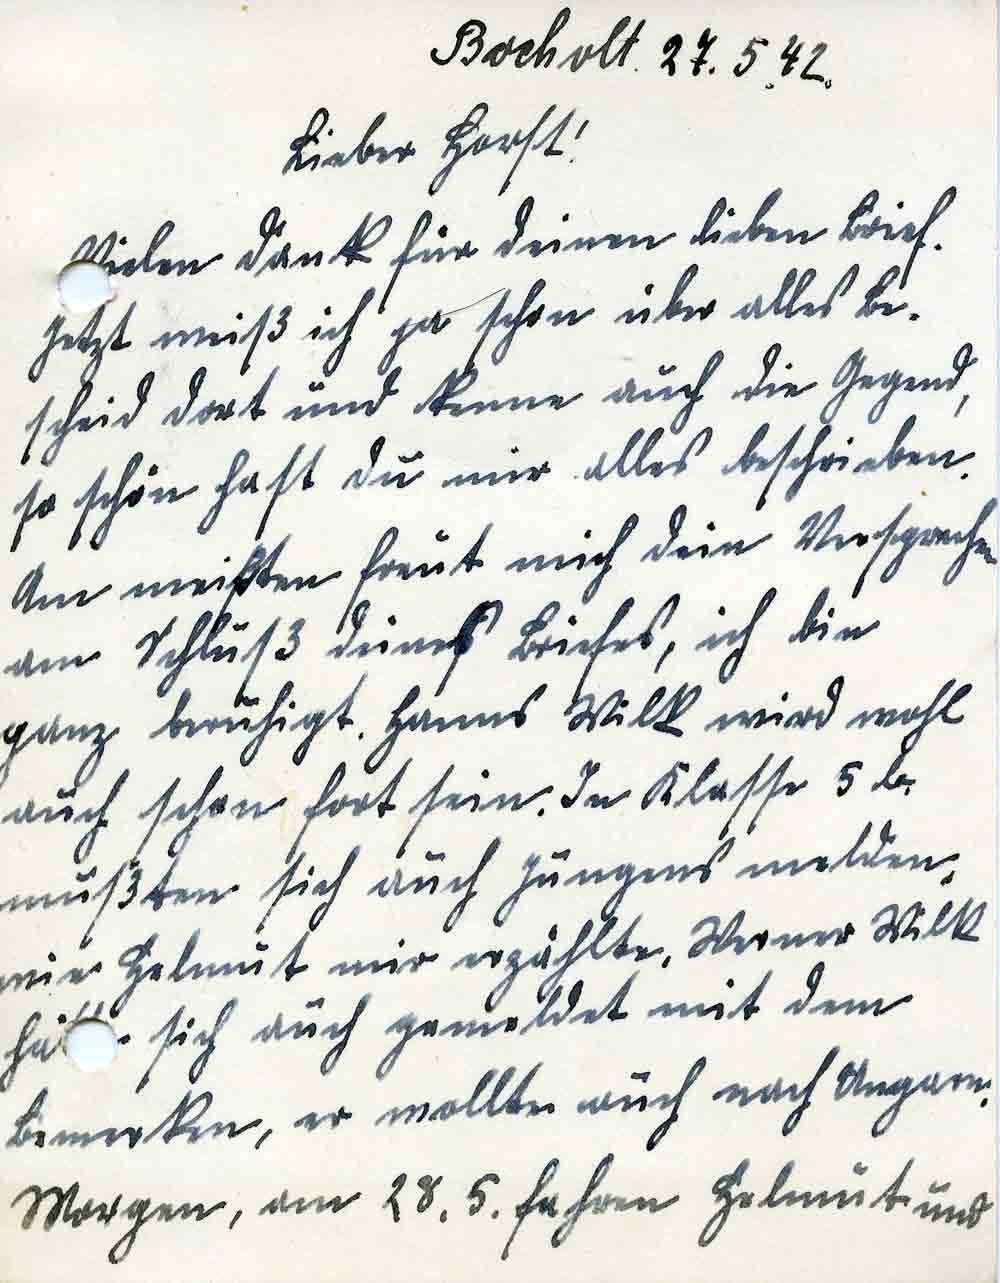 Bocholt. 27. 5. 42.
Lieber Horst!
Vielen Dank für deinen lieben Brief.
Jetzt weiß ich ja schon über alles Be-
scheid dort und kenne auch die Gegend,
so schön hast du mir alles beschrieben.
Am meisten freut mich dein Versprechen
am Schluß deines Briefes, ich bin
ganz beruhigt. Hanns Wilk wird wohl
auch schon fort sein. In Klasse 5 b.
mußten sich auch Jungens melden,
wie Helmut mir erzählte. Werner Wilk
hätte sich auch gemeldet mit dem
Bemerken, er wollte auch nach Ungarn.
Morgen, am 28. 5. fahren Helmut und